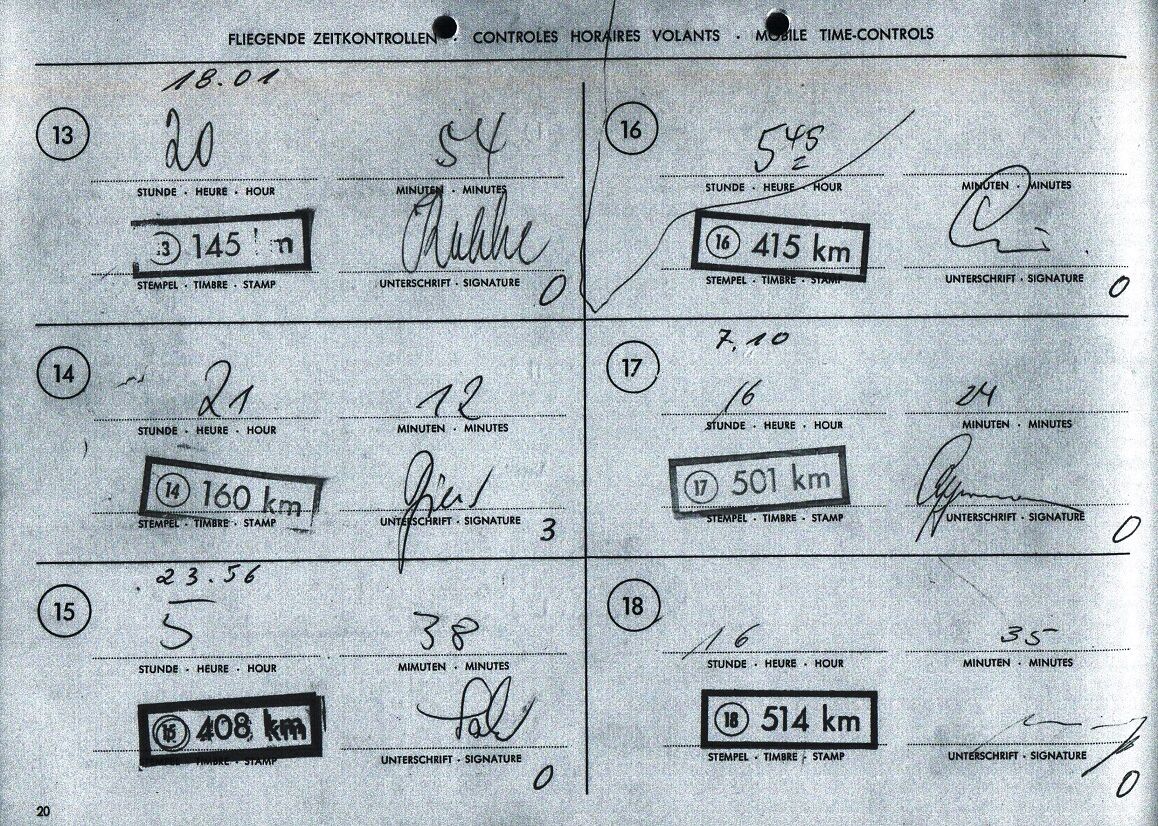 FLIEGENDE ZEITKONTROLLEN · CONTROLES HORAIRES VOLANTS · MOBILE TIME-CONTROLS
18.01
13
20 54
STUNDE · HEURE · HOUR MINUTEN · MINUTES
145
STEMPEL · TIMBRE · STAMP UNTERSCHRIFT · SIGNATURE 0
14
21 12
STUNDE · HEURE · HOUR MINUTEN · MINUTES
14 160 km
STEMPEL · TIMBRE · STAMP UNTERSCHRIFT · SIGNATURE 3
23.56
15
5 38
STUNDE · HEURE · HOUR MIMUTEN · MINUTES
15 408 km
STEMPEL · TIMBRE · STAMP UNTERSCHRIFT · SIGNATURE 0
16
5 45
STUNDE · HEURE · HOUR MINUTEN · MINUTES
16 415 km
STEMPEL · TIMBRE · STAMP UNTERSCHRIFT · SIGNATURE 0
7.10
17
16 24
STUNDE · HEURE · HOUR MINUTEN · MINUTES
17 501 km
STEMPEL · TIMBRE · STAMP UNTERSCHRIFT · SIGNATURE 0
18
16 35
STUNDE · HEURE · HOUR MINUTEN · MINUTES
18 514 km
STEMPEL · TIMBRE · STAMP UNTERSCHRIFT · SIGNATURE 0
20